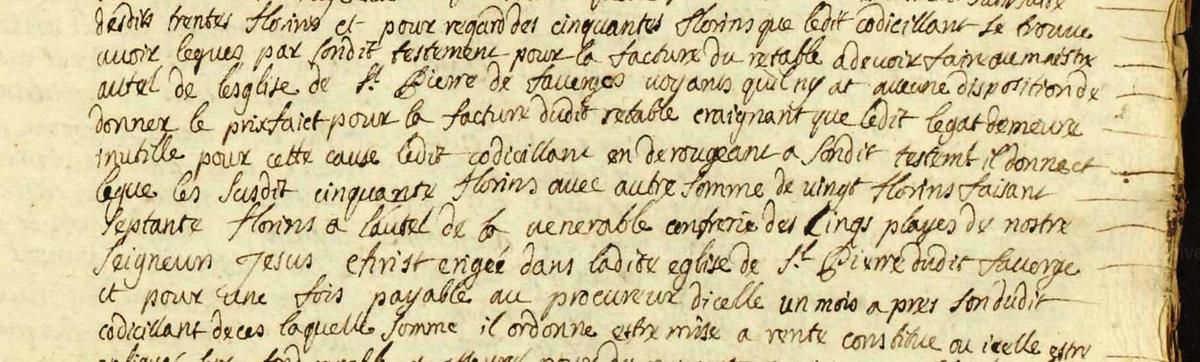 desdits trentes florins et pour regard des cinquantes florins que ledit codicillant se trouve
avoir legues par sondit testement pour la facture du retable a devoir faire au maistre
autel de lesglise de St Pierre de faverges voyants quil ny at aucune disposition de
donner le prixfaict pour la facture dudit retable craignant que ledit legat demeure
inutille pour cette cause ledit codicillant en derougeant a sondit testemt il donne et
legue les susdit cinquante florins avec autre somme de vingt florins faisant
septante florins a lautel de la venerable confrerie des Cings playes de nostre
seigneur Jesus christ erigée dans ladite eglise de St Pierre dudit faverge
et pour une fois payable au procureur dicelle un mois a pres son dudit
codicillant deces laquelle somme il ordonne estre mise a rente constitue ou icelle estre